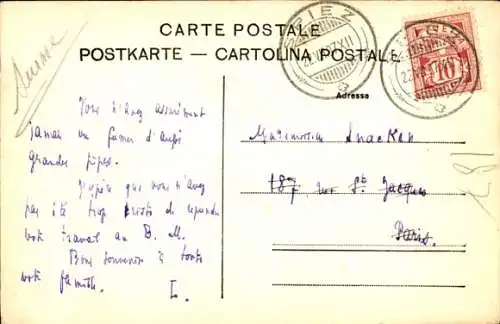 Suisse
CARTE POSTALE
POSTKARTE — CARTOLINA POSTALE
SPIEZ
Adresse
10
Vous n'avez assurément
jamais vu fumer d'aussi
grandes pipes.
J'espère que vous n'avez
pas été trop de reprendre
votre travail au B. M.
Bons souvenirs à toute
votre famille. L.
Mademoiselle
187, rue St. Jacques
Paris.